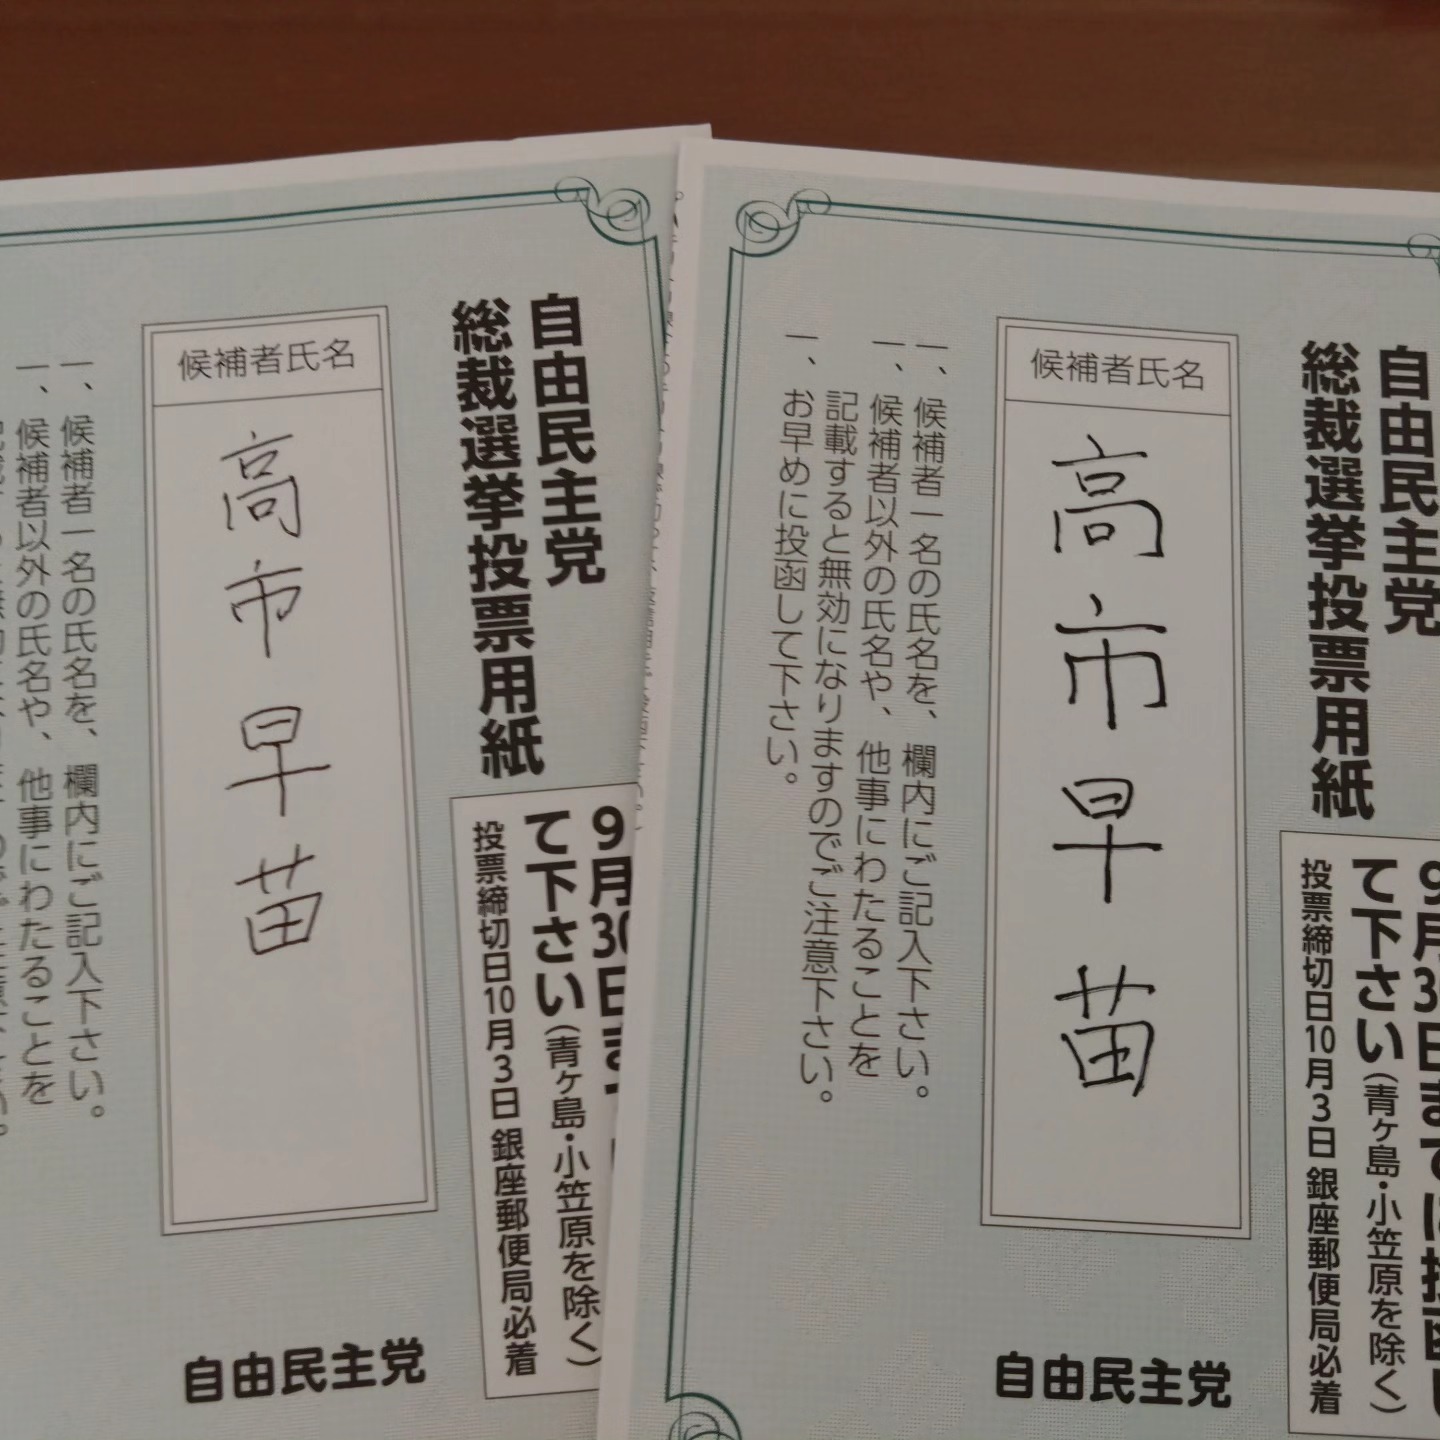 自由民主党
総裁選挙投票用紙
9月30日ま
て下さい(青ヶ島・小笠原を除く)
投票締切日10月3日 銀座郵便局必着
候補者氏名
高市早苗
一、候補者一名の氏名を、欄内にご記入下さい。
一、候補者以外の氏名や、他事にわたることを
自由民主党
自由民主党
総裁選挙投票用紙
9月30日までに投函し
て下さい(青ヶ島・小笠原を除く)
投票締切日10月3日 銀座郵便局必着
候補者氏名
高市早苗
一、候補者一名の氏名を、欄内にご記入下さい。
一、候補者以外の氏名や、他事にわたることを
記載すると無効になりますのでご注意下さい。
一、お早めに投函して下さい。
自由民主党